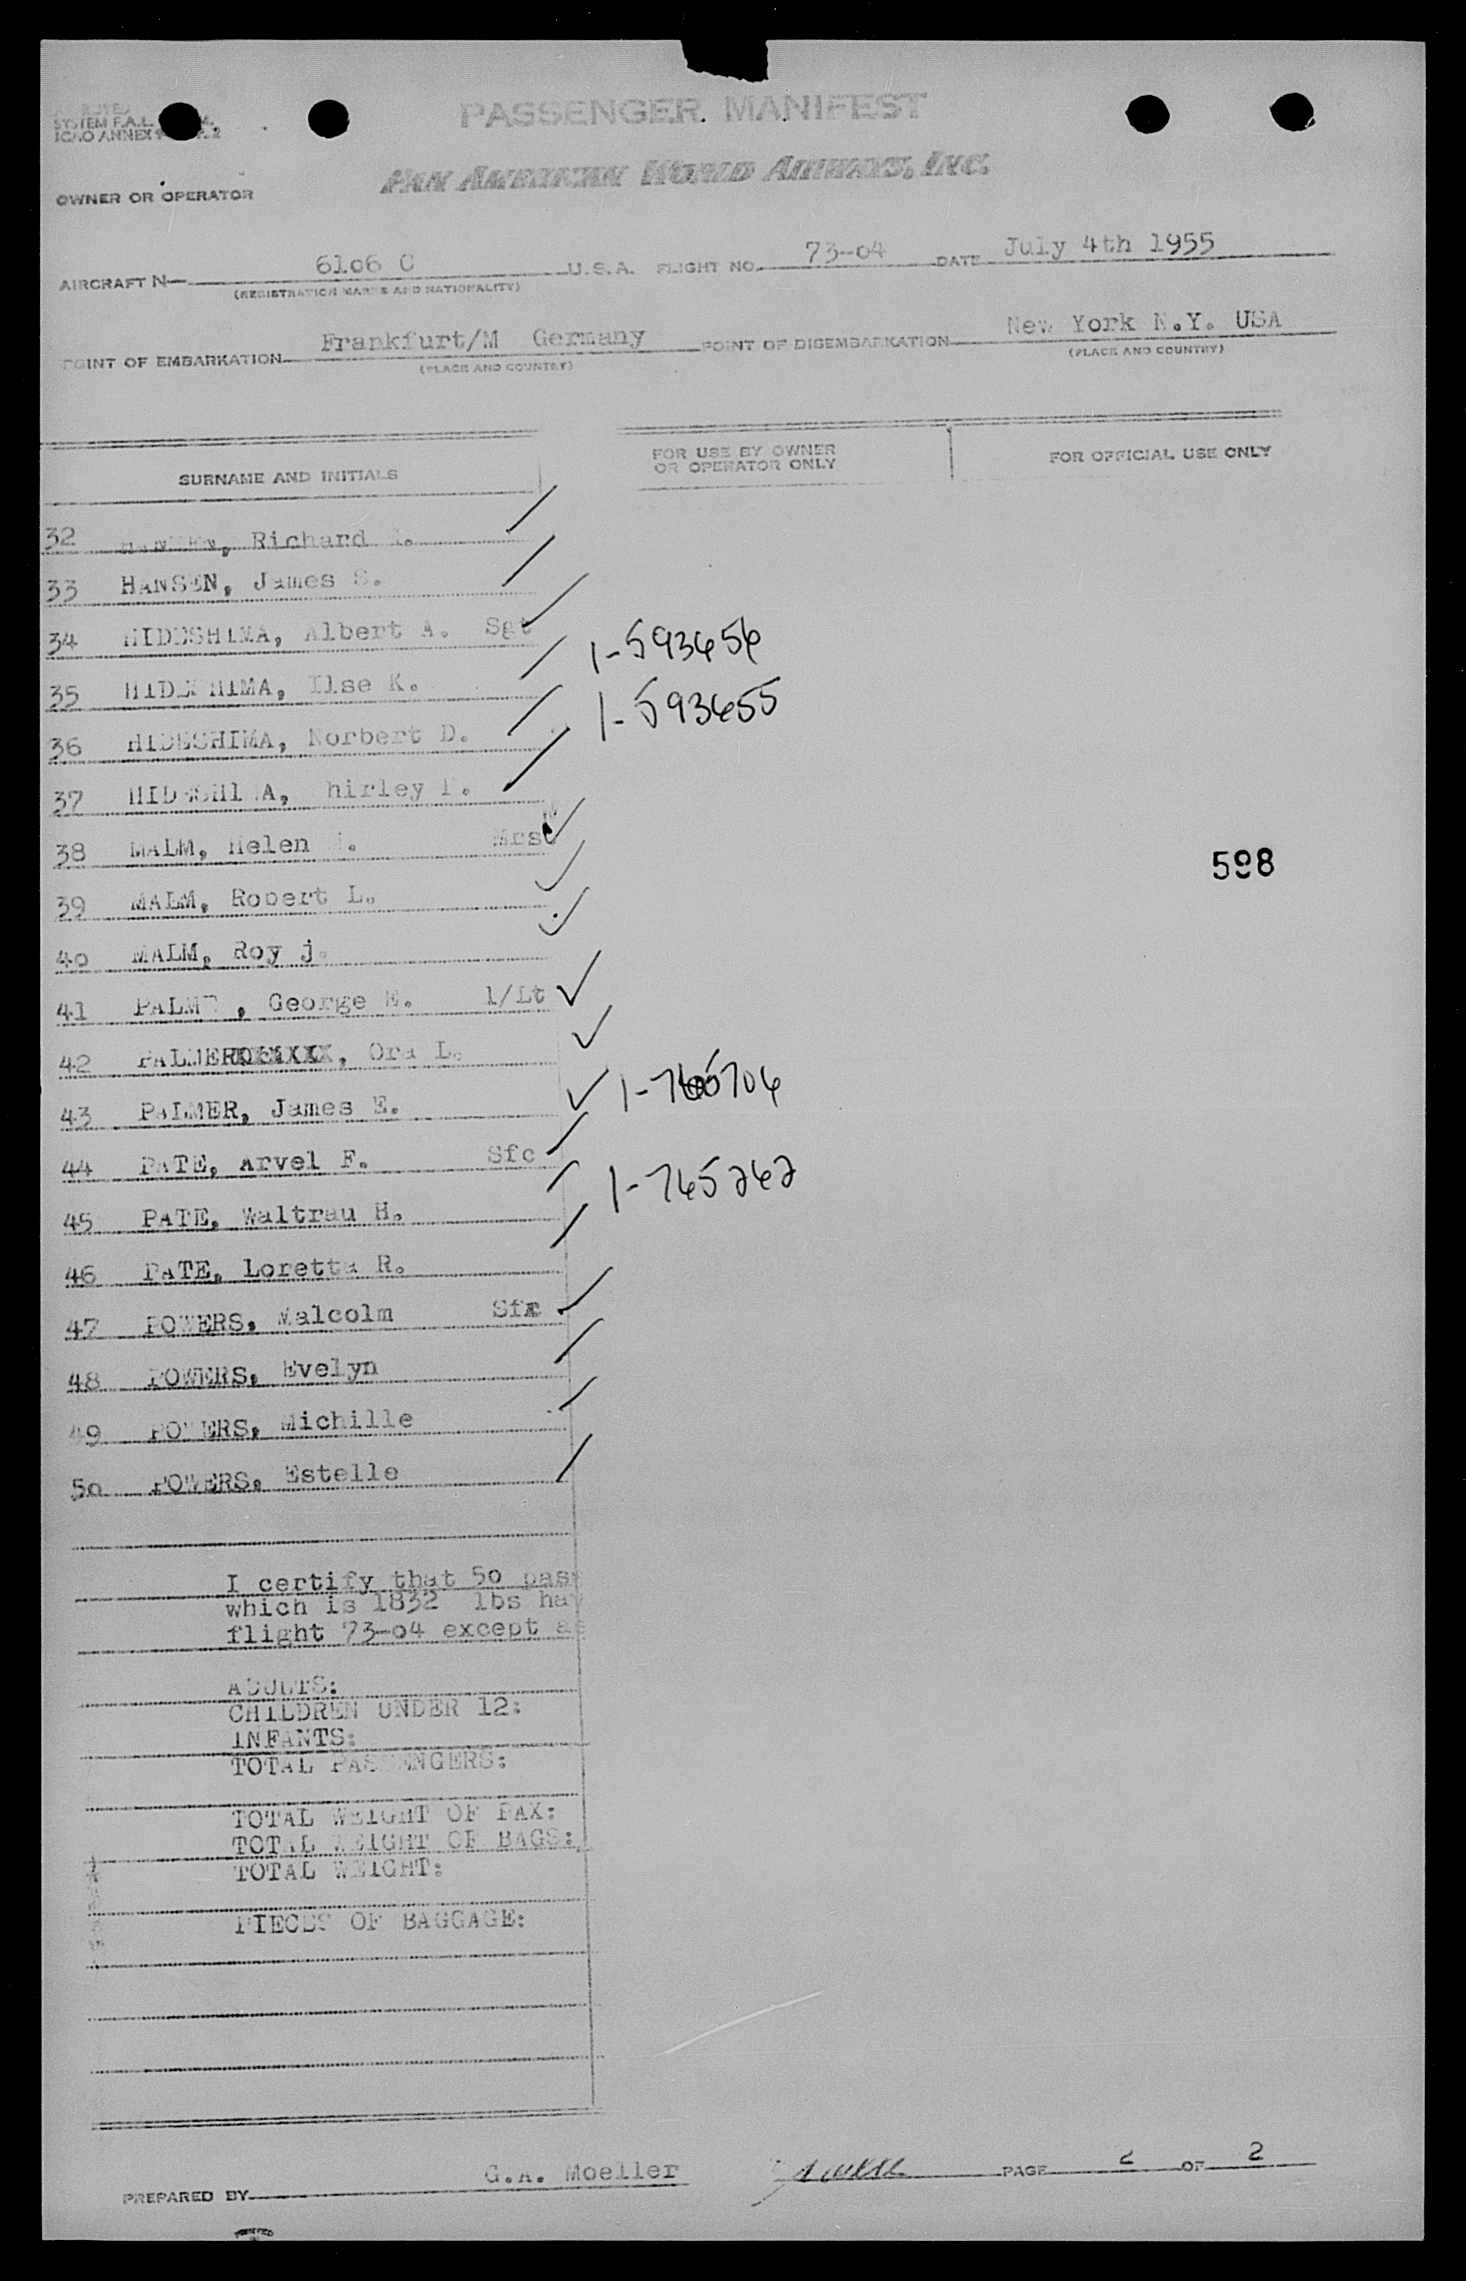 SYSTEM F.A.L.
ICAO ANNEX 9
PASSENGER MANIFEST
PAN AMERICAN WORLD AIRWAYS, INC.
OWNER OR OPERATOR
AIRCRAFT N— 6106 C U.S.A. FLIGHT NO. 73-04 DATE July 4th 1955
(REGISTRATION MARKS AND NATIONALITY)
POINT OF EMBARKATION Frankfurt/M Germany POINT OF DISEMBARKATION New York N.Y. USA
(PLACE AND COUNTRY) (PLACE AND COUNTRY)
SURNAME AND INITIALS
FOR USE BY OWNER
OR OPERATOR ONLY
FOR OFFICIAL USE ONLY
32 Richard
33 HANSEN, James S.
34 HIDESHIMA, Albert A. Sgt
35 HIDESHIMA, Ilse K. 1-593656
36 HIDESHIMA, Norbert D. 1-593655
37 HIDESHIMA, Shirley
38 MALM, Helen Mrs
39 MALM, Robert L.
598
40 MALM, Roy j.
41 PALMER, George E. 1/Lt
42 PALMER, Ora L.
43 PALMER, James E. 1-765706
44 PATE, Arvel F. Sfc
45 PATE, Waltrau H. 1-765262
46 PATE, Loretta R.
47 POWERS, Malcolm Sfc
48 POWERS, Evelyn
49 POWERS, Michille
50 POWERS, Estelle
I certify that 50 pass
which is 1832 lbs hav
flight 73-04 except as
ADULTS:
CHILDREN UNDER 12:
INFANTS:
TOTAL PASSENGERS:
TOTAL WEIGHT OF PAX:
TOTAL WEIGHT OF BAGS:
TOTAL WEIGHT:
PIECES OF BAGGAGE:
PREPARED BY G.A. Moeller PAGE 2 OF 2